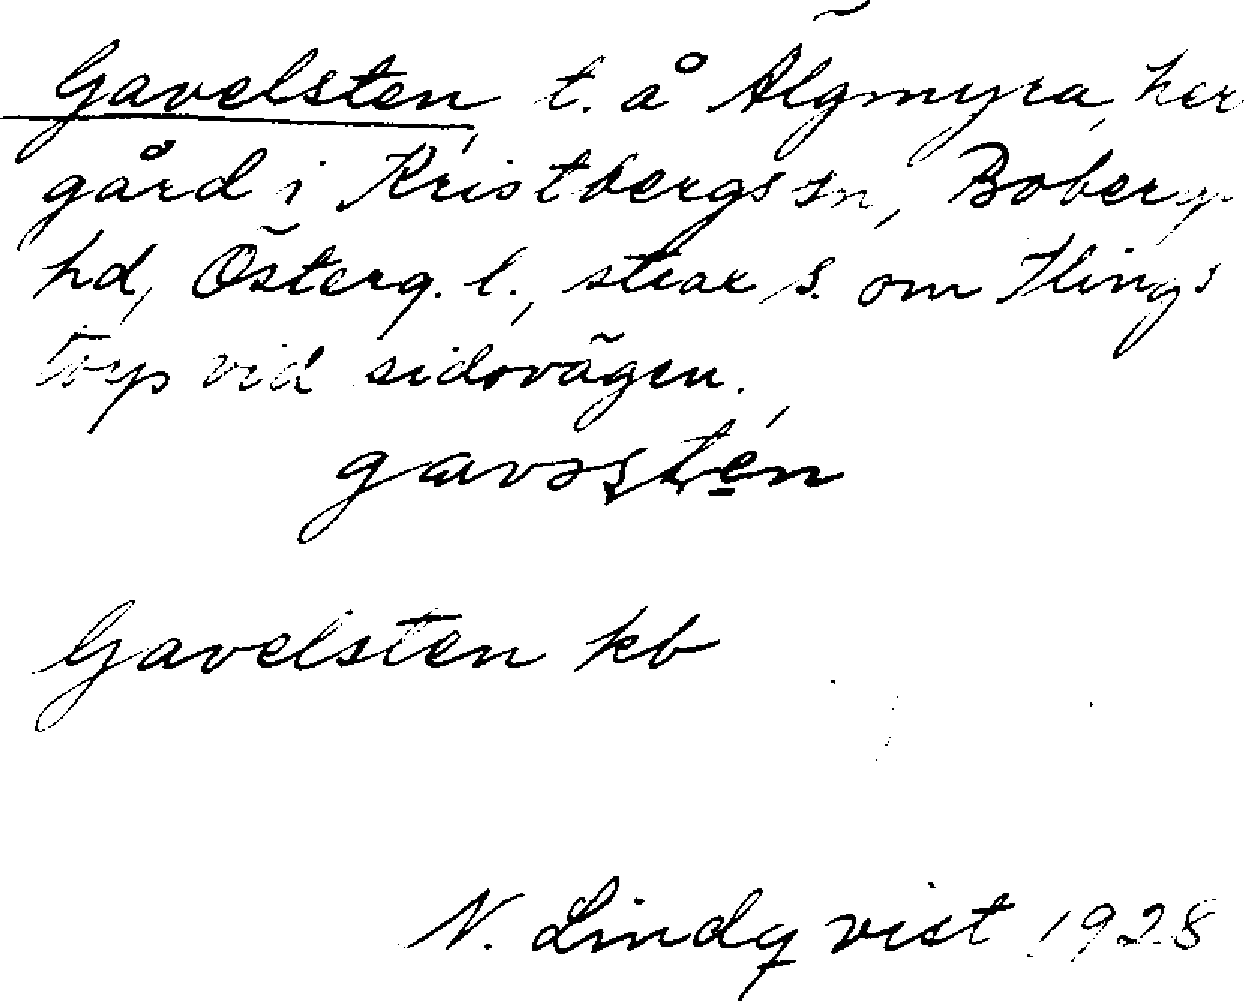 Gavelsten, t. å Älgmyra, her
gård i Kristbergs sn, Bobergs
hd, Österg. l., strax s. om Klings
torp vid sidovägen.
Gavelsten kb
N. Lindqvist 1928